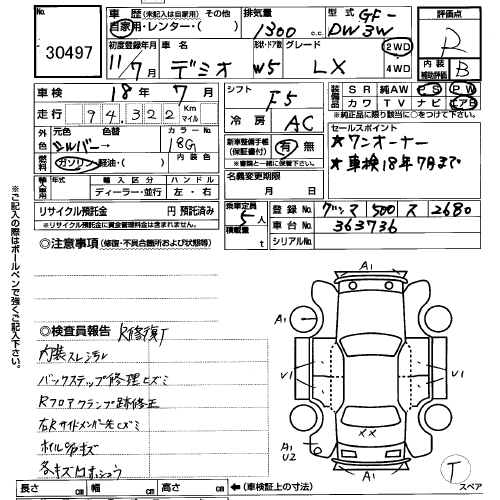 No. 30497
車歴 (未記入は自家用) その他
自家用・レンター・( )
排気量 1300 c.c.
型式 GF-DW3W
評価点 R
内装補助評価 B
初度登録年月 11/7月
車名 デミオ
形状・ドア数 W5
グレード LX
2WD
4WD
車検 18年 7月
走行 94,322 Km マイル
シフト F5
冷房 AC
装備品 SR 純AW PS PW
カワ TV ナビ エアB
★純正品に限り該当に○をつけて下さい。
外色 元色 シルバー→ 色替
カラーNo. 18G
内装色
燃料 ガソリン・軽油・( )
新車整備手帳 (保証書付) 有・無
セールスポイント
★ワンオーナー
★車検18年7月まで
輸入車用 年式 輸入区分 ディーラー・並行 ハンドル 左・右
名義変更期限 月 日
リサイクル預託金 円 預託済み
※リサイクル預託金に資金管理料金は含まれません。
乗車定員 5人
積載量 t
登録No. グンマ 500 ス 2680
車台No. 363736
シリアルNo.
◎注意事項 (修復・不具合箇所および状態等)
※ご記入の際はボールペンで強くご記入下さい。
◎検査員報告 R修復T
内装スレ
バックステップ修理ヒズミ
Rフロアクランプ跡修正
右Rサイドメンバー先ヒズミ
ホイルキズ
各キズ
A1
A1
A1
U1
U1
XX
A1
U2
A1
T
スペア
長さ cm 幅 cm 高さ cm ←(車検証上の寸法)